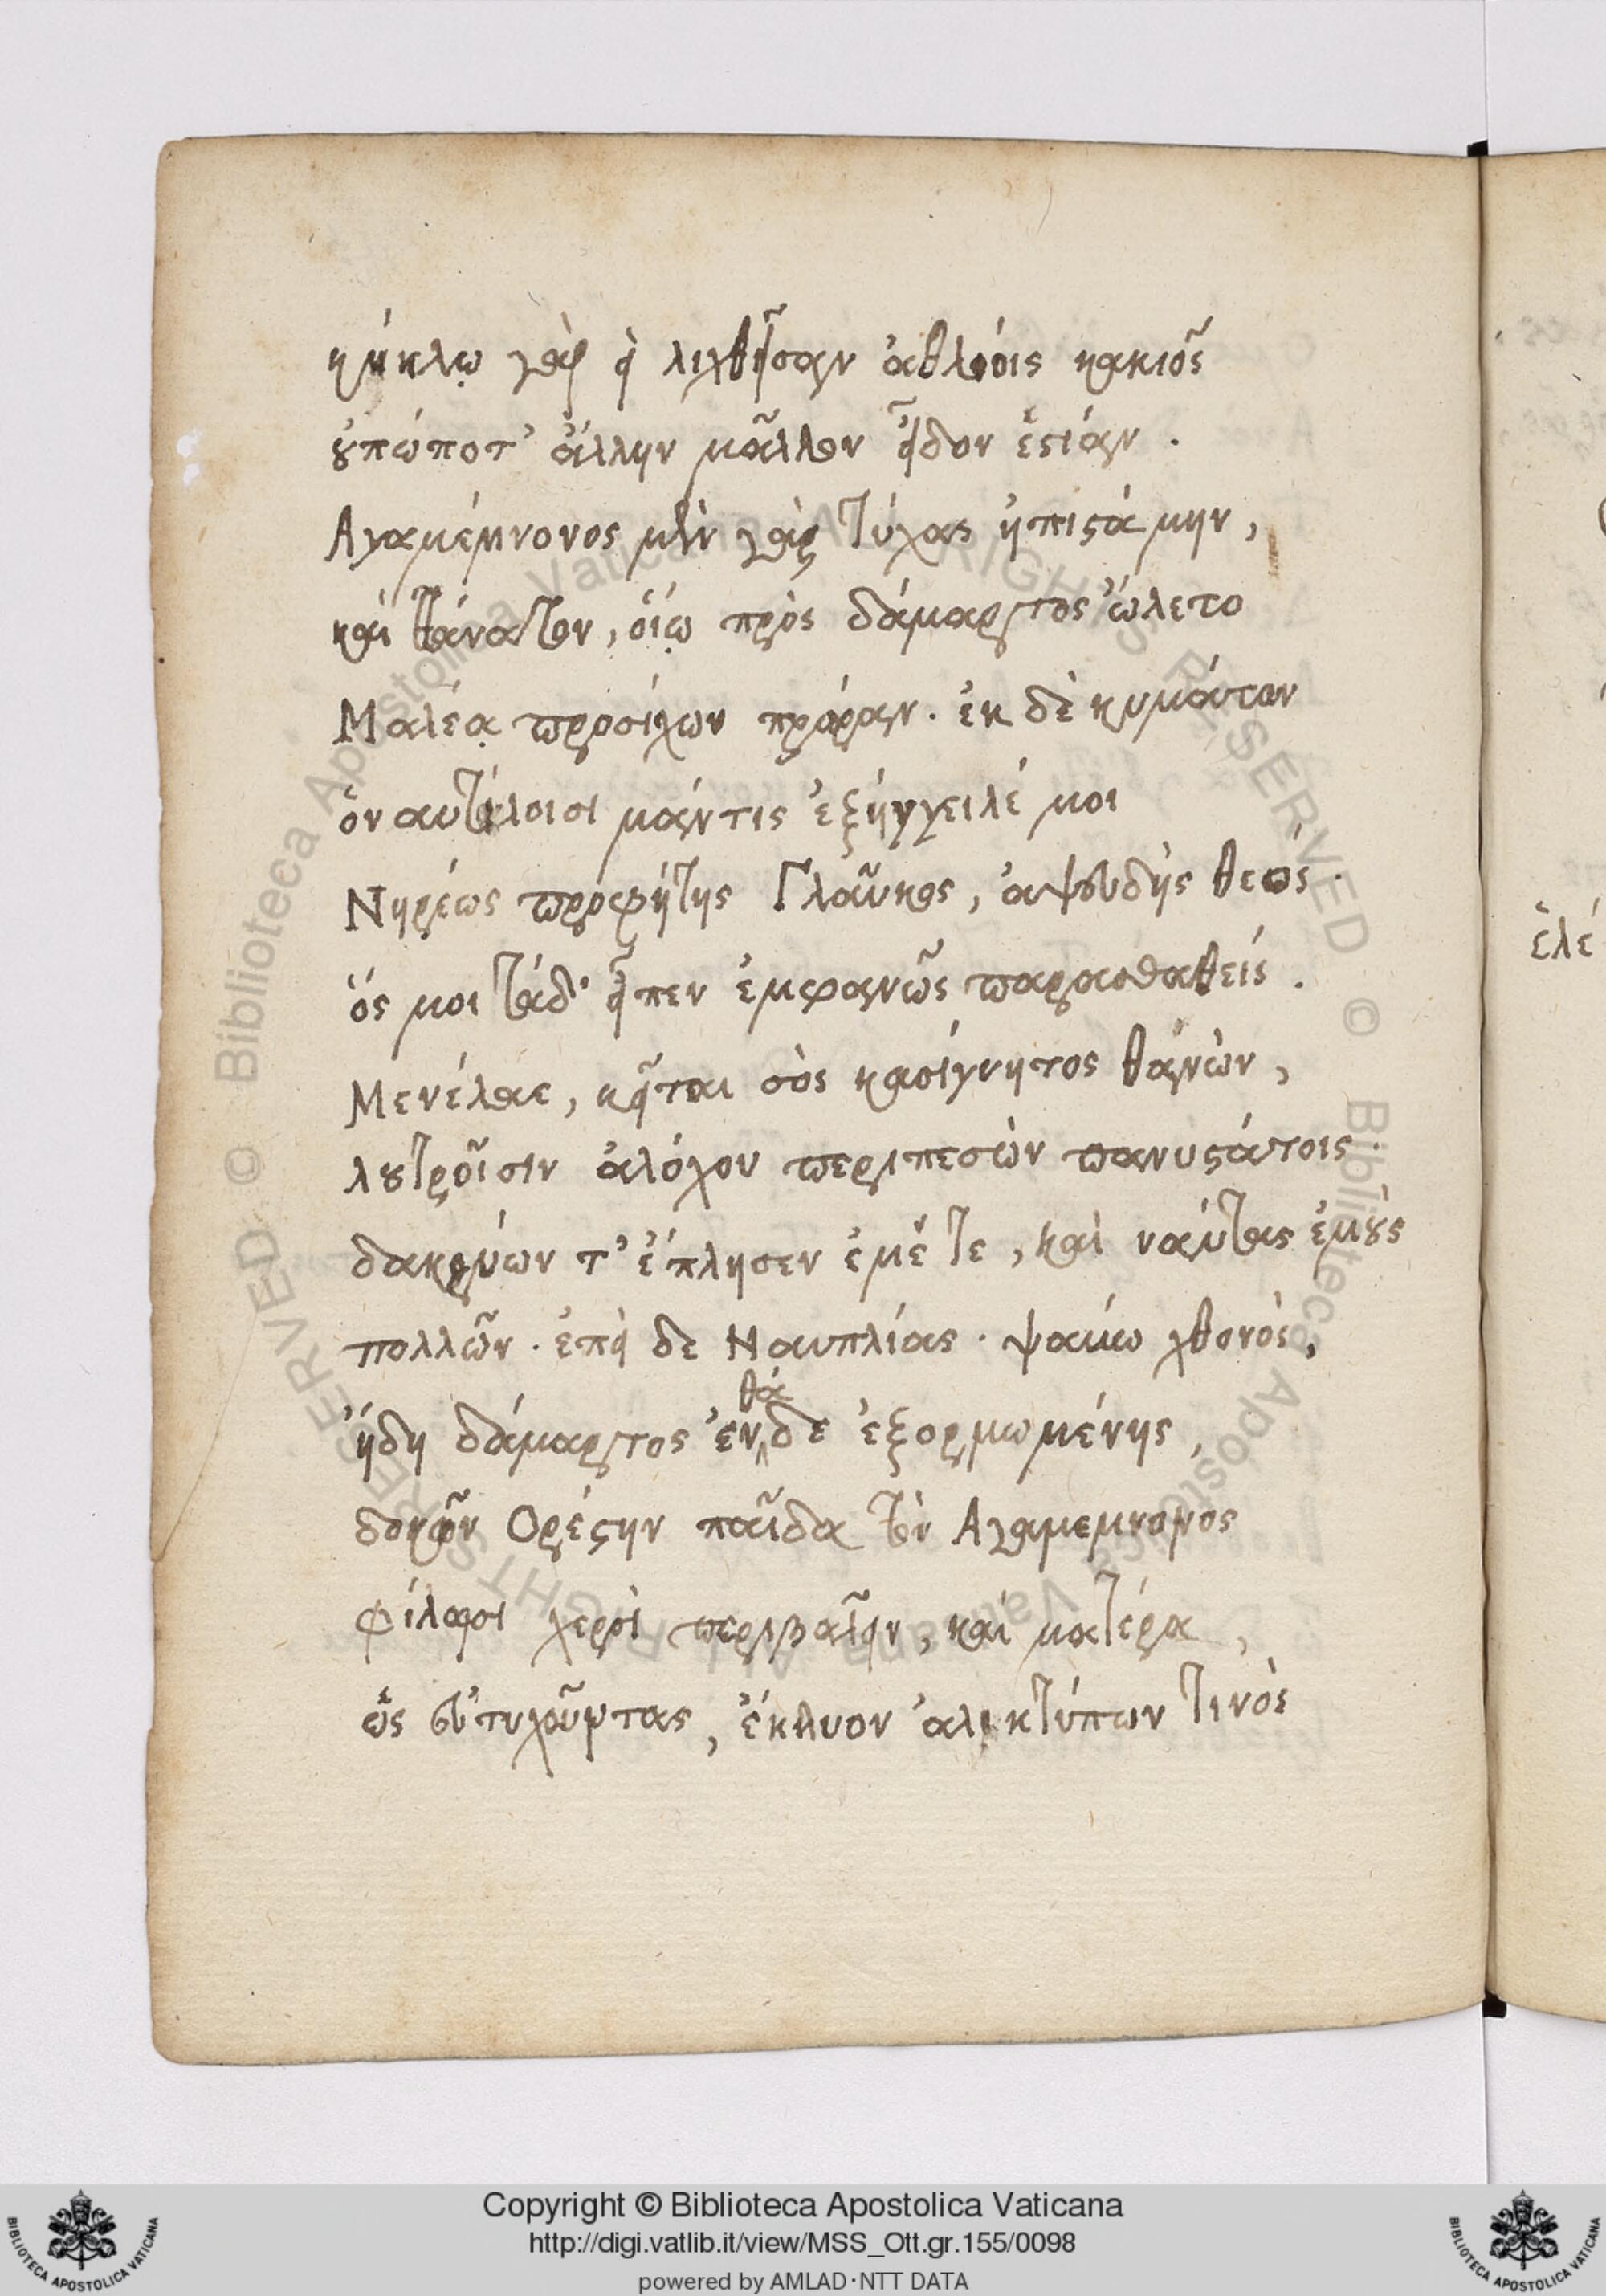 κύκλῳ γὰρ εἱλιχθεῖσαν ἀθλίοις κακοῖς
οὐπώποτ' ἄλλην μᾶλλον εἶδον ἑστίαν.
Ἀγαμέμνονος μὲν γὰρ τύχας ἠπιστάμην,
καὶ θάνατον, οἵῳ πρὸς δάμαρτος ὤλετο
Μαλέᾳ προσίχων πρώραν. ἐκ δὲ κυμάτων
ὁ ναυτίλοισι μάντις ἐξήγγειλέ μοι
Νηρέως προφήτης Γλαῦκος, ἀψευδὴς θεός.
ὅς μοι τάδ' εἶπεν ἐμφανῶς παρασταθείς.
Μενέλαε, κεῖται σὸς κασίγνητος θανών,
λουτροῖσιν ἀλόχου περιπεσὼν πανυστάτοις.
δακρύων τ' ἔπλησεν ἐμέ τε, καὶ ναύτας ἐμοὺς
πολλῶν. ἐπεὶ δε Ναυπλίας. ψαύω χθονὸς,
ἤδη δάμαρτος ἐνθάδε ἐξορμωμένης,
δοκῶν Ὀρέστην παῖδα τὸν Ἀγαμεμνονος
φίλαισι χερσὶ περιβαλεῖν, καὶ ματέρα,
ὡς εὐτυχοῦντας, ἔκλυον ἁλικτύπων τινὸς
ἑλέ
Copyright © Biblioteca Apostolica Vaticana
http://digi.vatlib.it/view/MSS_Ott.gr.155/0098
powered by AMLAD·NTT DATA